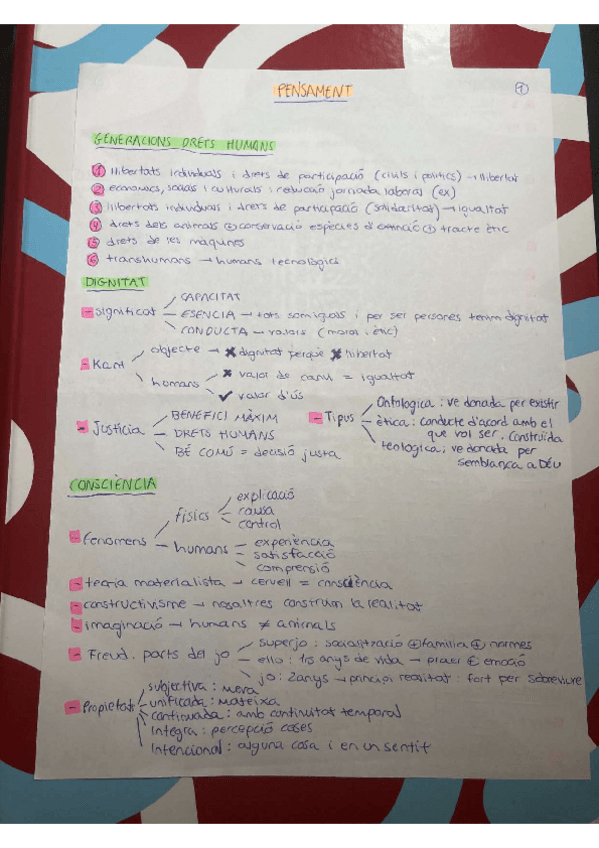 PENSAMENT
1
GENERACIONS DRETS HUMANS
1 llibertats individuals i drets de participació (civils i polítics) → llibertat
2 econòmics, socials i culturals i reducció jornada laboral (ex)
3 llibertats individuals i drets de participació (solidaritat) → igualtat
4 drets dels animals ⊕ conservació espècies d'extinció ⊕ tracte ètic
5 drets de les màquines
6 transhumans → humans tecnològics
DIGNITAT
- significat
CAPACITAT
ESENCIA → tots som iguals i per ser persones tenim dignitat
CONDUCTA → valors (moral i ètic)
- Kant
objecte → ✗ dignitat perquè ✗ llibertat
humans
✗ valor de canvi = igualtat
✓ valor d'ús
- Justícia
BENEFICI MÀXIM
DRETS HUMANS
BÉ COMÚ = decisió justa
- Tipus
Ontologica: ve donada per existir
ètica: conducte d'acord amb el
que vol ser, construïda
teologica: ve donada per
semblança a DÉU
CONSCIÈNCIA
- fenomens
físics
explicació
causa
control
humans
experiència
satisfacció
comprensió
- teoria materialista → cervell = consciència
- constructivisme → nosaltres construim la realitat
- imaginació → humans ≠ animals
- Freud. parts del jo
superjo: socialització ⊕ familia ⊕ normes
ello: 1rs anys de vida → plaer ⊕ emoció
jo: 2anys → principi realitat: fort per sobreviure
- Propietats
subjectiva: meva
unificada: mateixa
continuada: amb continuïtat temporal
Integra: percepció coses
Intencional: alguna cosa i en un sentit